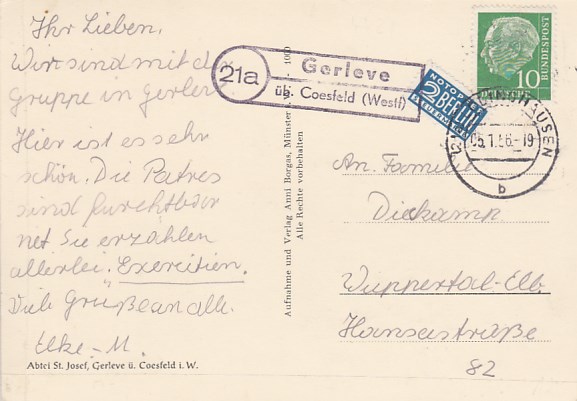 Ihr Lieben.
Wir sind mit der
Gruppe in Gerleve
Hier ist es sehr
schön. Die Patres
sind furchtbar
nett Sie erzählen
allerlei. Exercitien.
Viele Grüße an alle.
Elke-M.
Abtei St. Josef, Gerleve ü. Coesfeld i. W.
Aufnahme und Verlag Anni Borgas, Münster
Alle Rechte vorbehalten
1000
21a
Gerleve
üb. Coesfeld (Westf)
NOTOPFER
2 BERLIN
STEUERMARKE
DEUTSCHE
BUNDESPOST
10
05.1.56.-19
b
An. Familie
Dieckamp
Wuppertal-Elb.
Hansastraße
82